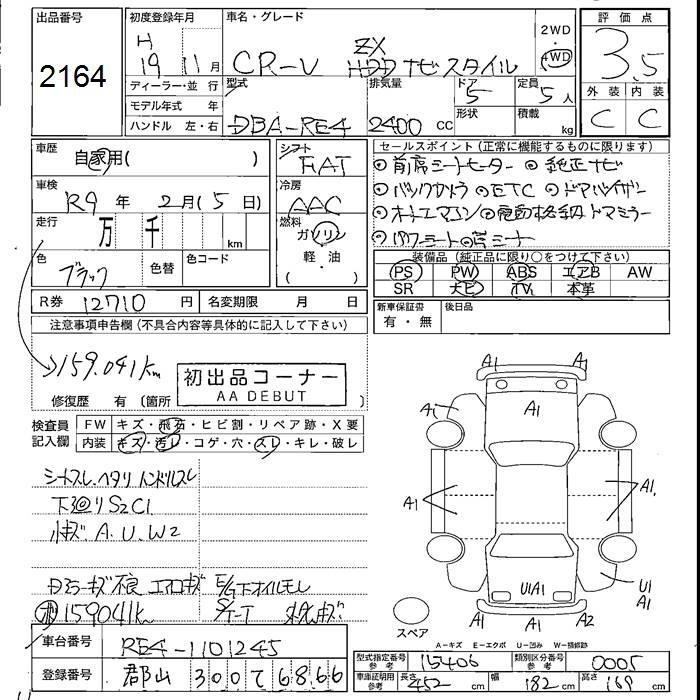 出品番号
2164
初度登録年月
H
19 11 月
ディーラー・並 行
モデル年式 年
ハンドル 左・右
車名・グレード
CR-V ZX
HDD ナビスタイル
2WD
4WD
型式
DBA-RE4
排気量
2400 cc
ドア
5
形状
定員
5 人
積載
kg
評 価 点
3.5
外 装 内 装
C C
車歴
自家用( )
車検
R9 年 2月( 5 日)
走行
万 千 km
色
ブラック
色替 色コード
R券 12710 円 名変期限 月 日
シフト
FAT
冷房
AAC
燃料
ガソリン
軽・油
( )
セールスポイント(正常に機能するものに限ります)
◎前席シートヒーター ◎純正ナビ
◎バックカメラ ◎ETC ◎ドアバイザー
◎オートエアコン ◎電動格納ドアミラー
◎パワーシート
装備品(純正品に限り○をつけて下さい)
PS PW ABS エアB AW
SR ナビ TV 本革
新車保証書
有・無
後日品
注意事項申告欄(不具合内容等具体的に記入して下さい)
159.041km
初出品コーナー
AA DEBUT
修復歴 有 (箇所
検査員
記入欄
FW キズ・飛石・ヒビ割・リペア跡・X要
内装 キズ・汚レ・コゲ・穴・スレ・キレ・破レ
シートスレ、ヘタリ ハンドルスレ
下廻りS2C1
小キズ A.U.W2
Dミラーキズ不良 エアロキズ E/G下オイルモレ
159041k S/T-T
車台番号 RE4-1101245
登録番号 郡山 300 て 6866
A1
A1
A1
A1
A1
A1
A1
A1
U1A1
U1
A1
A1
A1
A2
スペア
A−キズ E−エクボ U−凹み W−補修跡
型式指定番号
参考
15406
類別区分番号
参考
0005
車庫証明用
参考
長さ 452 cm 幅 182 cm 高さ 169 cm